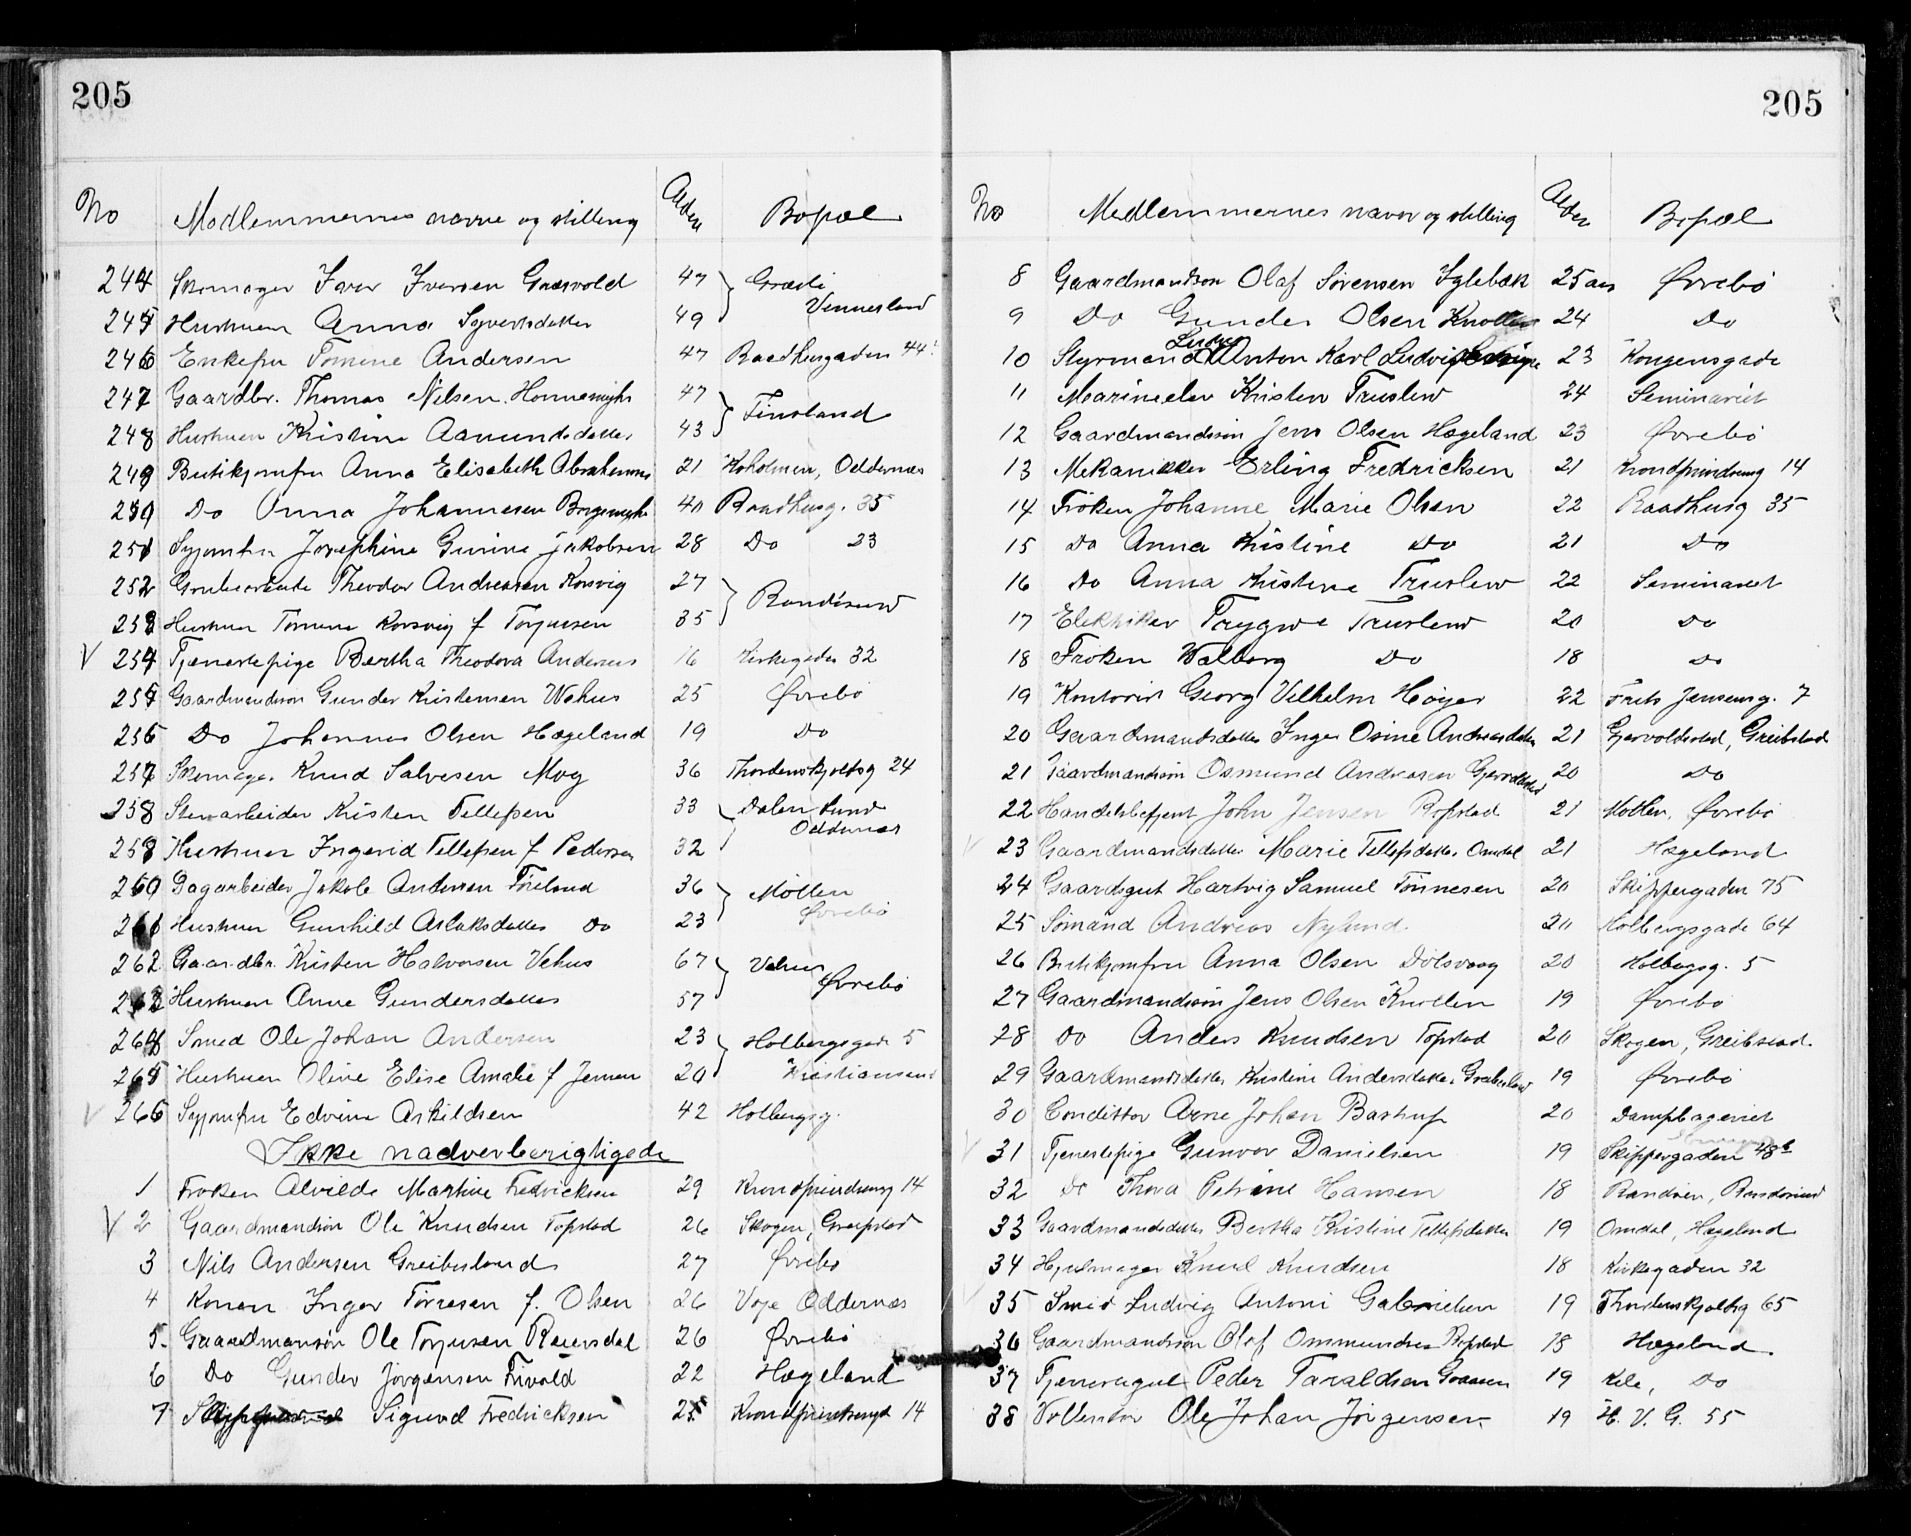 205
No Medlemmernes navne og stilling Alder Bopæl
244 Skomager Iver Iversen Græsvold 47 Græsli
245 Hustruen Anna Syvertsdatter 49 Vennesland
246 Enkefru Tomine Andersen 47 Raadhusgaden 44
247 Gaardbr. Thomas Nilsen Honnemyhr 47 Finsland
248 Hustruen Kristine Aamundsdatter 43
249 Butikjomfru Anna Elisabeth Abrahamsen 21 Koholmen, Oddernæs
250 Do Anna Johannesen Borgemyhr 40 Raadhusg. 35
251 Syjomfru Josephine Gurine Jakobsen 28 Do 23
252 Grubearbeide Theodor Andreasen Korsvig 27 Randøsund
253 Hustruen Tomine Korsvig f Torjusen 35
V 254 Tjenestepige Bertha Theodora Andersen 16 Kirkegaden 32
255 Gaardmandssøn Gunder Kristensen Wehus 25 Øvrebø
256 Do Johannes Olsen Hægeland 19 Do
257 Skomager Knud Salvesen Mog 36 Thordenskjoldsg 24
258 Stenarbeider Kristen Tellefsen 33 Dalen Lund
Oddernæs
259 Hustruen Ingerid Tellefsen f Pedersen 32
260 Dagarbeider Jakob Andersen Föreland 36 Mollen
261 Hustruen Gunhild Aslaksdatter Do 23 Øvrebø
262 Gaardbr. Kristen Halvorsen Vehus 67 Vehus
263 Hustruen Anne Gundersdatter 57 Øvrebø
264 Smed Ole Johan Andersen 23 Holbergsgade 5
265 Hustruen Oline Elise Amalie f Jensen 20 Kristiansand
V 266 Syjomfru Edvine Askildsen 42 Holbergsg.
Ikke nadverberigtigede
1 Frøken Alvilde Martine Fredricksen 29 Krondprindseng 14
V 2 Gaardmandsön Ole Knudsen Topstad 26 Skogen, Greipstad
3 Nils Andersen Greibesland 27 Øvrebø
4 Konen Inger Tørresen f. Olsen 26 Voje Oddernæs
5. Gaardmansøn Ole Torjusen Reiersdal 26 Øvrebø
6 Do Gunder Jörgensen Fivold 22 Hægeland
7 Sigurd Fredricksen 25 Krondprindsensgt 14
205
No Medlemmernes navne og stilling Alder Bopæl
8 Gaardmandssøn Olaf Sørensen Iglebæk 25 aar Øvrebø
9 Do Gunder Olsen Knotten 24 Do
10 Styrmand Anton Karl Ludvig 23 Kongensgade
11 Marinelev Kristen Truslew 24 Seminariet
12 Gaardmandssön Jens Olsen Hægeland 23 Øvrebö
13 Mekaniker Erling Fredricksen 21 Krondprindseng 14
14 Fröken Johanne Marie Olsen 22 Raadhusg 35
15 Do Anna Kristine Do 21 Do
16 Do Anna Kristine Truslew 22 Seminariet
17 Elektriker Trygve Truslew 20 Do
18 Frøken Walborg Do 18 Do
19 Kontorist Georg Vilhelm Höyer 22 Frits Jensensg. 7
20 Gaardmandsdatter Inger Osine Andreasdatter 21 Gjervoldstad, Greibstad
21 Gaardmandssön Osmund Andreasen Gjervoldstad 20 Do
22 Handelsbetjent John Jensen Ropstad 21 Motten, Øvrebö
23 Gaardmandsdatter Marie Tellefsdatter Omdal 21 Hægeland
24 Gaardsgut Hartvig Samuel Tönnesen 20 Skippergaden 75
25 Sömand Andreas Nylund 20 Holbergsgade 64
26 Butikjomfru Anna Olsen Dölsvaag 20 Holbergsg. 5
27 Gaardmandssön Jens Olsen Knotten 19 Øvrebø
28 Do Anders Knudsen Topstad 20 Skogen, Greibstad.
29 Gaardmandsdatter Kristine Andersdatter Greibesland 19 Øvrebö
30 Conditor Arne Johan Bastrup 20 Dampbageriet
V 31 Tjenestepige Gunvor Danielsen 19 Skippergaden 48b
32 Do Thora Petrine Hansen 18 Randöen, Randøsund
33 Gaardmandsdatter Bertha Kristine Tellefsdatter 19 Omdal, Hægeland
34 Hjulmager Knud Knudsen 18 Kirkegaden 32
35 Smed Ludvig Antoni Gabrielsen 19 Thordenskjoldsg 65
36 Gaardmandssøn Olaf Ommundsen Ropstad 18 Hægeland.
37 Tjenestegut Peder Taraldsen Graasen 19 Kile, Do
38 Volontör Ole Johan Jörgensen 19 H. V. G. 55